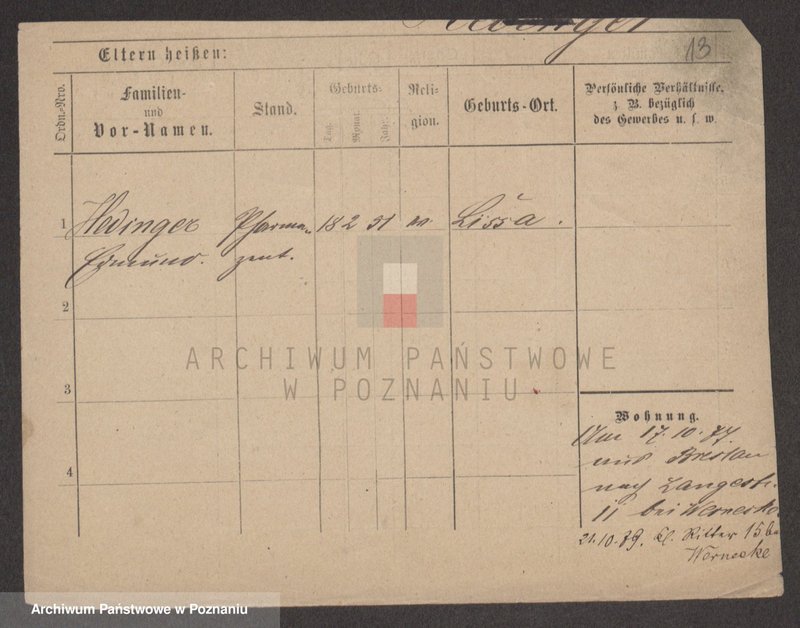 13
Eltern heißen:
Ordn.-Nro.
Familien-
und
Vor-Namen.
Stand.
Geburts-
Tag.
Monat.
Jahr.
Reli-
gion.
Geburts-Ort.
Persönliche Verhältnisse,
z. B. bezüglich
des Gewerbes u. s. w.
1 Hedinger Pharma- 18 2 51 Lissa.
Edmund. zeut.
2
3
4
Wohnung.
17.10.77.
Breslau
nach Langestr.
11 bei Wernecke
21.10.79. Kl. Ritter 15 bei
Wernecke
ARCHIWUM PAŃSTWOWE
W POZNANIU
Archiwum Państwowe w Poznaniu